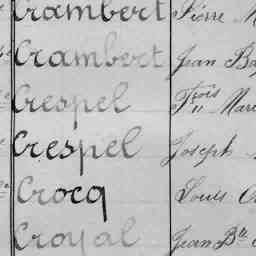 Crambert Pierre M
Crambert Jean Ba
Crespel Fçois Marc
Crespel Joseph
Crocq Louis
Croyal Jean Bte